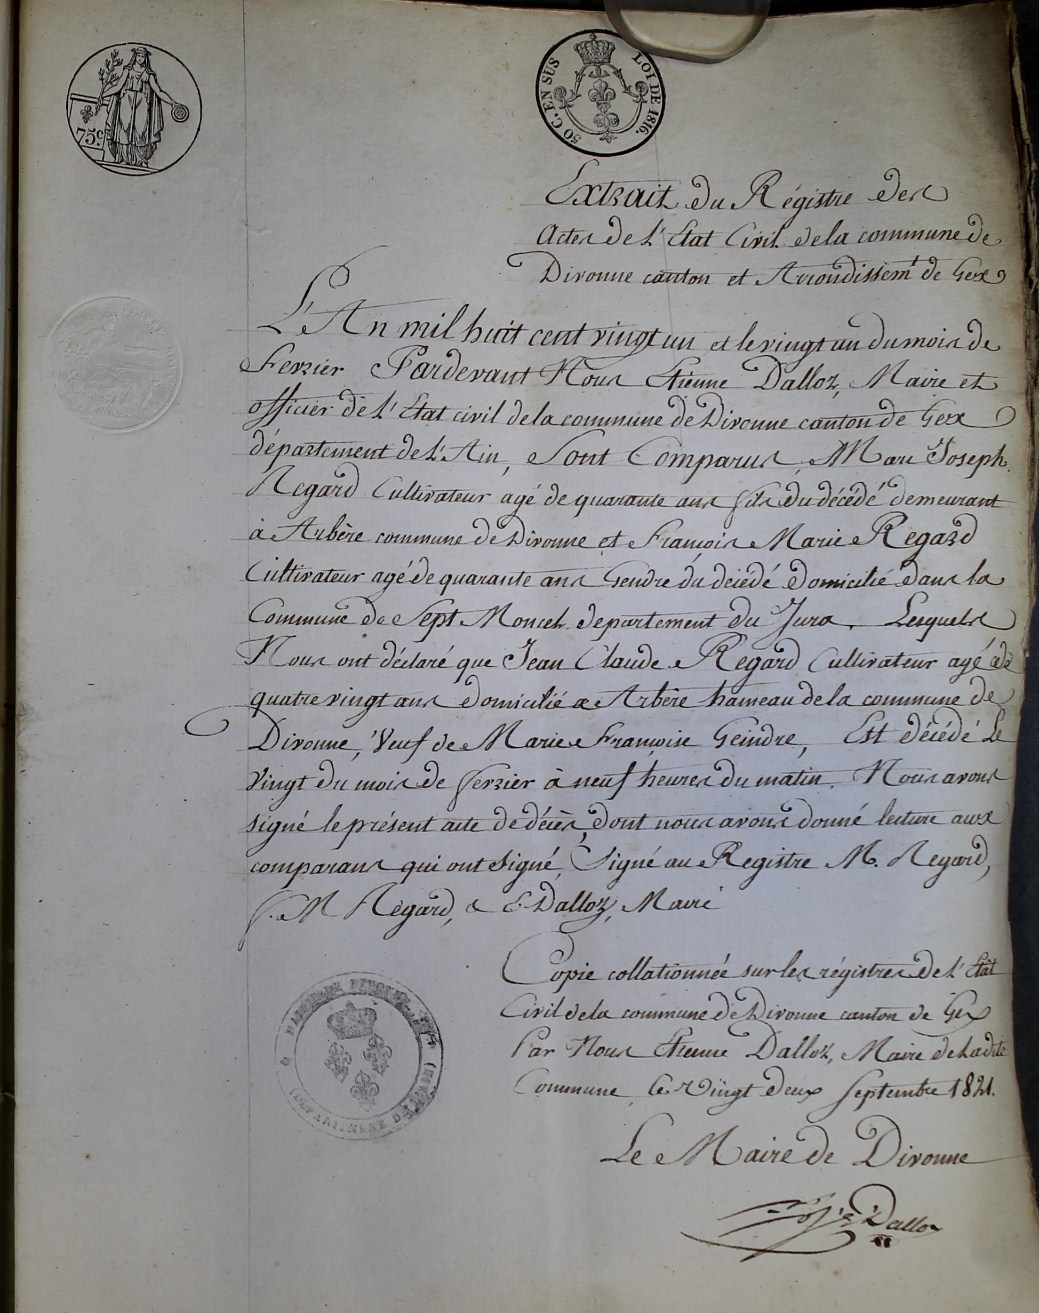 75 c.
50 C. EN SUS LOI DE 1816.
Extrait du Régistre des
Actes de L'Etat Civil de la commune de
Divonne canton et Arrondissemt. de Gex
L'An mil huit cent vingt un et le vingt un du mois de
Fevrier Pardevant Nous Etienne Dalloz, Maire et
officier de L'Etat civil de la commune de Divonne canton de Gex
département de L'Ain, Sont Comparus, Marc Joseph
Regard Cultivateur agé de quarante ans fils du décédé demeurant
à Arbère commune de Divonne et François Marie Regard
Cultivateur agé de quarante ans Gendre du décédé domicilié dans la
Commune de Sept Moncel departement du Jura. Lesquels
Nous ont déclaré que Jean Claude Regard Cultivateur agé de
quatre vingt ans domicilié a Arbère hameau de la commune de
Divonne, Veuf de Marie Françoise Geindre, Est décédé Le
Vingt du mois de fevrier à neuf heures du matin. Nous avons
signé le présent acte de décès, dont nous avons donné lecture aux
comparans qui ont signé, Signé au Registre M. Regard,
f. M Regard, & E. Dalloz, Maire
Copie collationnée sur les régistres de L'Etat
Civil de la commune de Divonne canton de Gex
Par Nous Etienne Dalloz, Maire de Ladite
Commune le Vingt deux Septembre 1821.
Le Maire de Divonne
Dalloz